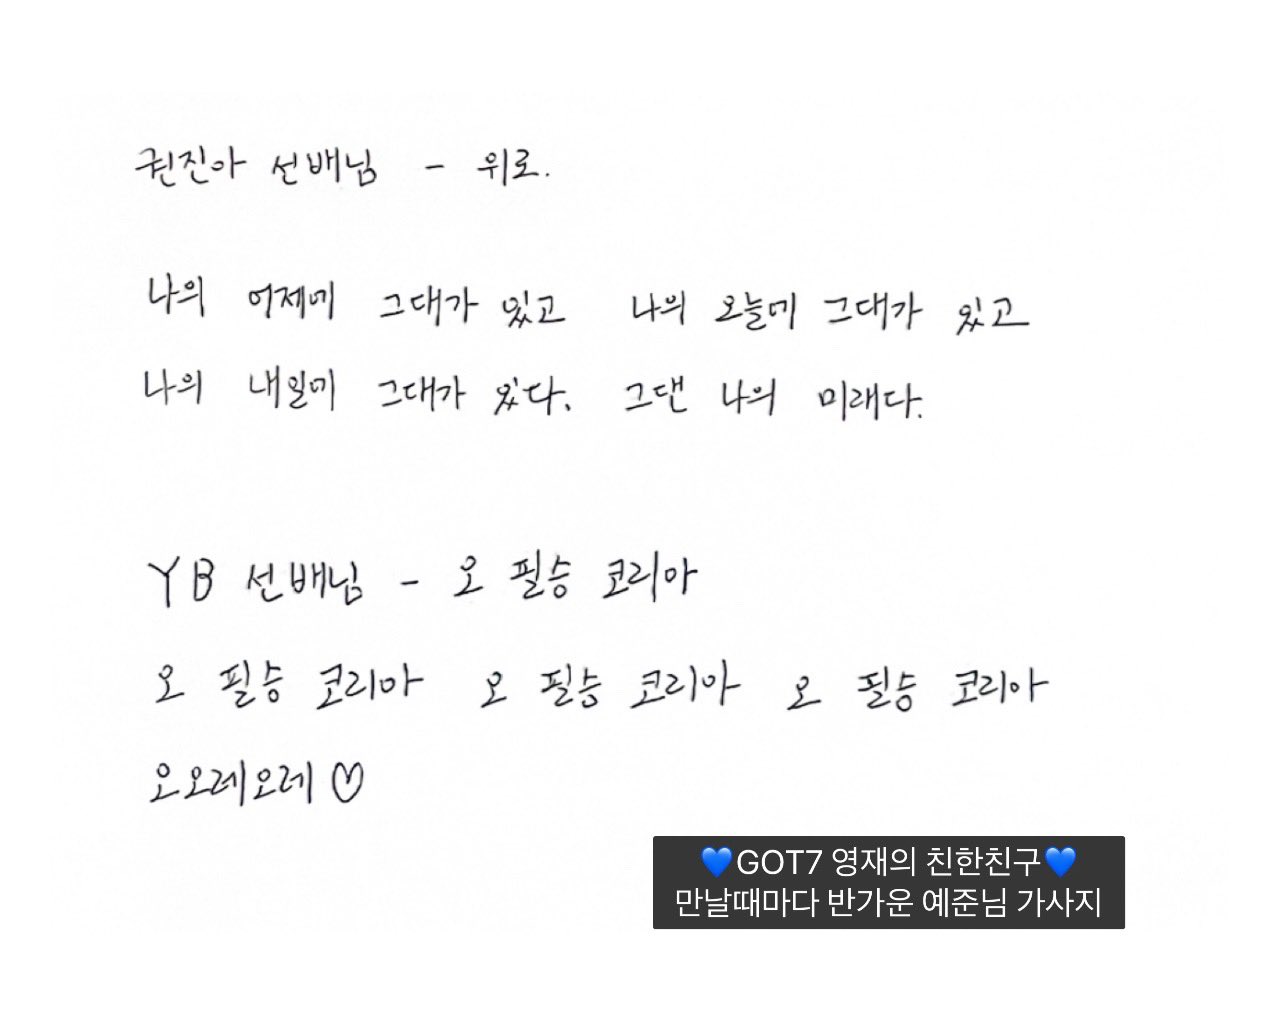 권진아 선배님 - 위로.
나의 어제에 그대가 있고 나의 오늘에 그대가 있고
나의 내일에 그대가 있다. 그댄 나의 미래다.
YB 선배님 - 오 필승 코리아
오 필승 코리아 오 필승 코리아 오 필승 코리아
오오레오레♡
💙GOT7 영재의 친한친구💙
만날때마다 반가운 예준님 가사지